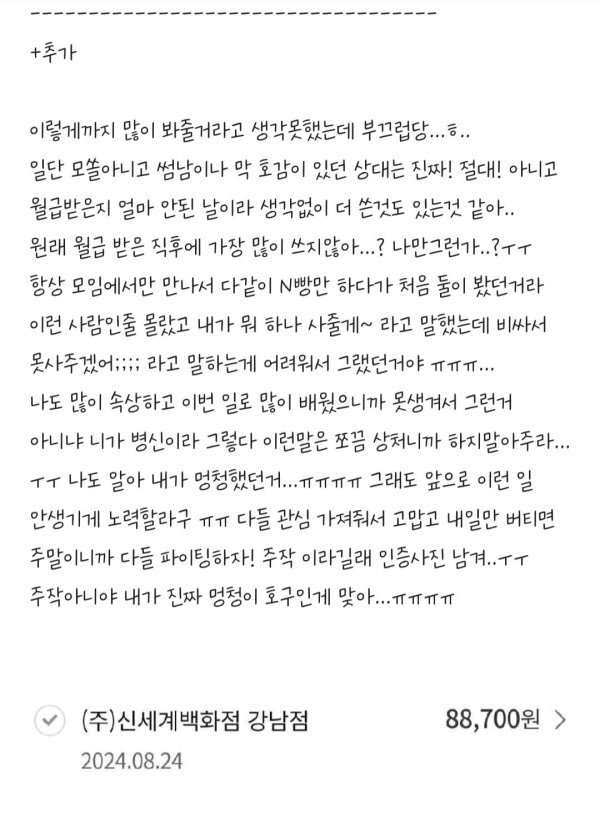 ----------------------------------
+추가
이렇게까지 많이 봐줄거라고 생각못했는데 부끄럽당...ㅎ..
일단 모쏠아니고 썸남이나 막 호감이 있던 상대는 진짜! 절대! 아니고
월급받은지 얼마 안된 날이라 생각없이 더 쓴것도 있는것 같아..
원래 월급 받은 직후에 가장 많이 쓰지않아...? 나만그런가..?ㅜㅜ
항상 모임에서만 만나서 다같이 N빵만 하다가 처음 둘이 봤던거라
이런 사람인줄 몰랐고 내가 뭐 하나 사줄게~ 라고 말했는데 비싸서
못사주겠어;;;; 라고 말하는게 어려워서 그랬던거야 ㅠㅠㅠ...
나도 많이 속상하고 이번 일로 많이 배웠으니까 못생겨서 그런거
아니냐 니가 병신이라 그렇다 이런말은 쪼끔 상처니까 하지말아주라...
ㅜㅜ 나도 알아 내가 멍청했던거...ㅠㅠㅠㅠ 그래도 앞으로 이런 일
안생기게 노력할라구 ㅠㅠ 다들 관심 가져줘서 고맙고 내일만 버티면
주말이니까 다들 파이팅하자! 주작 이라길래 인증사진 남겨..ㅜㅜ
주작아니야 내가 진짜 멍청이 호구인게 맞아...ㅠㅠㅠㅠ
(주)신세계백화점 강남점 88,700원
2024.08.24